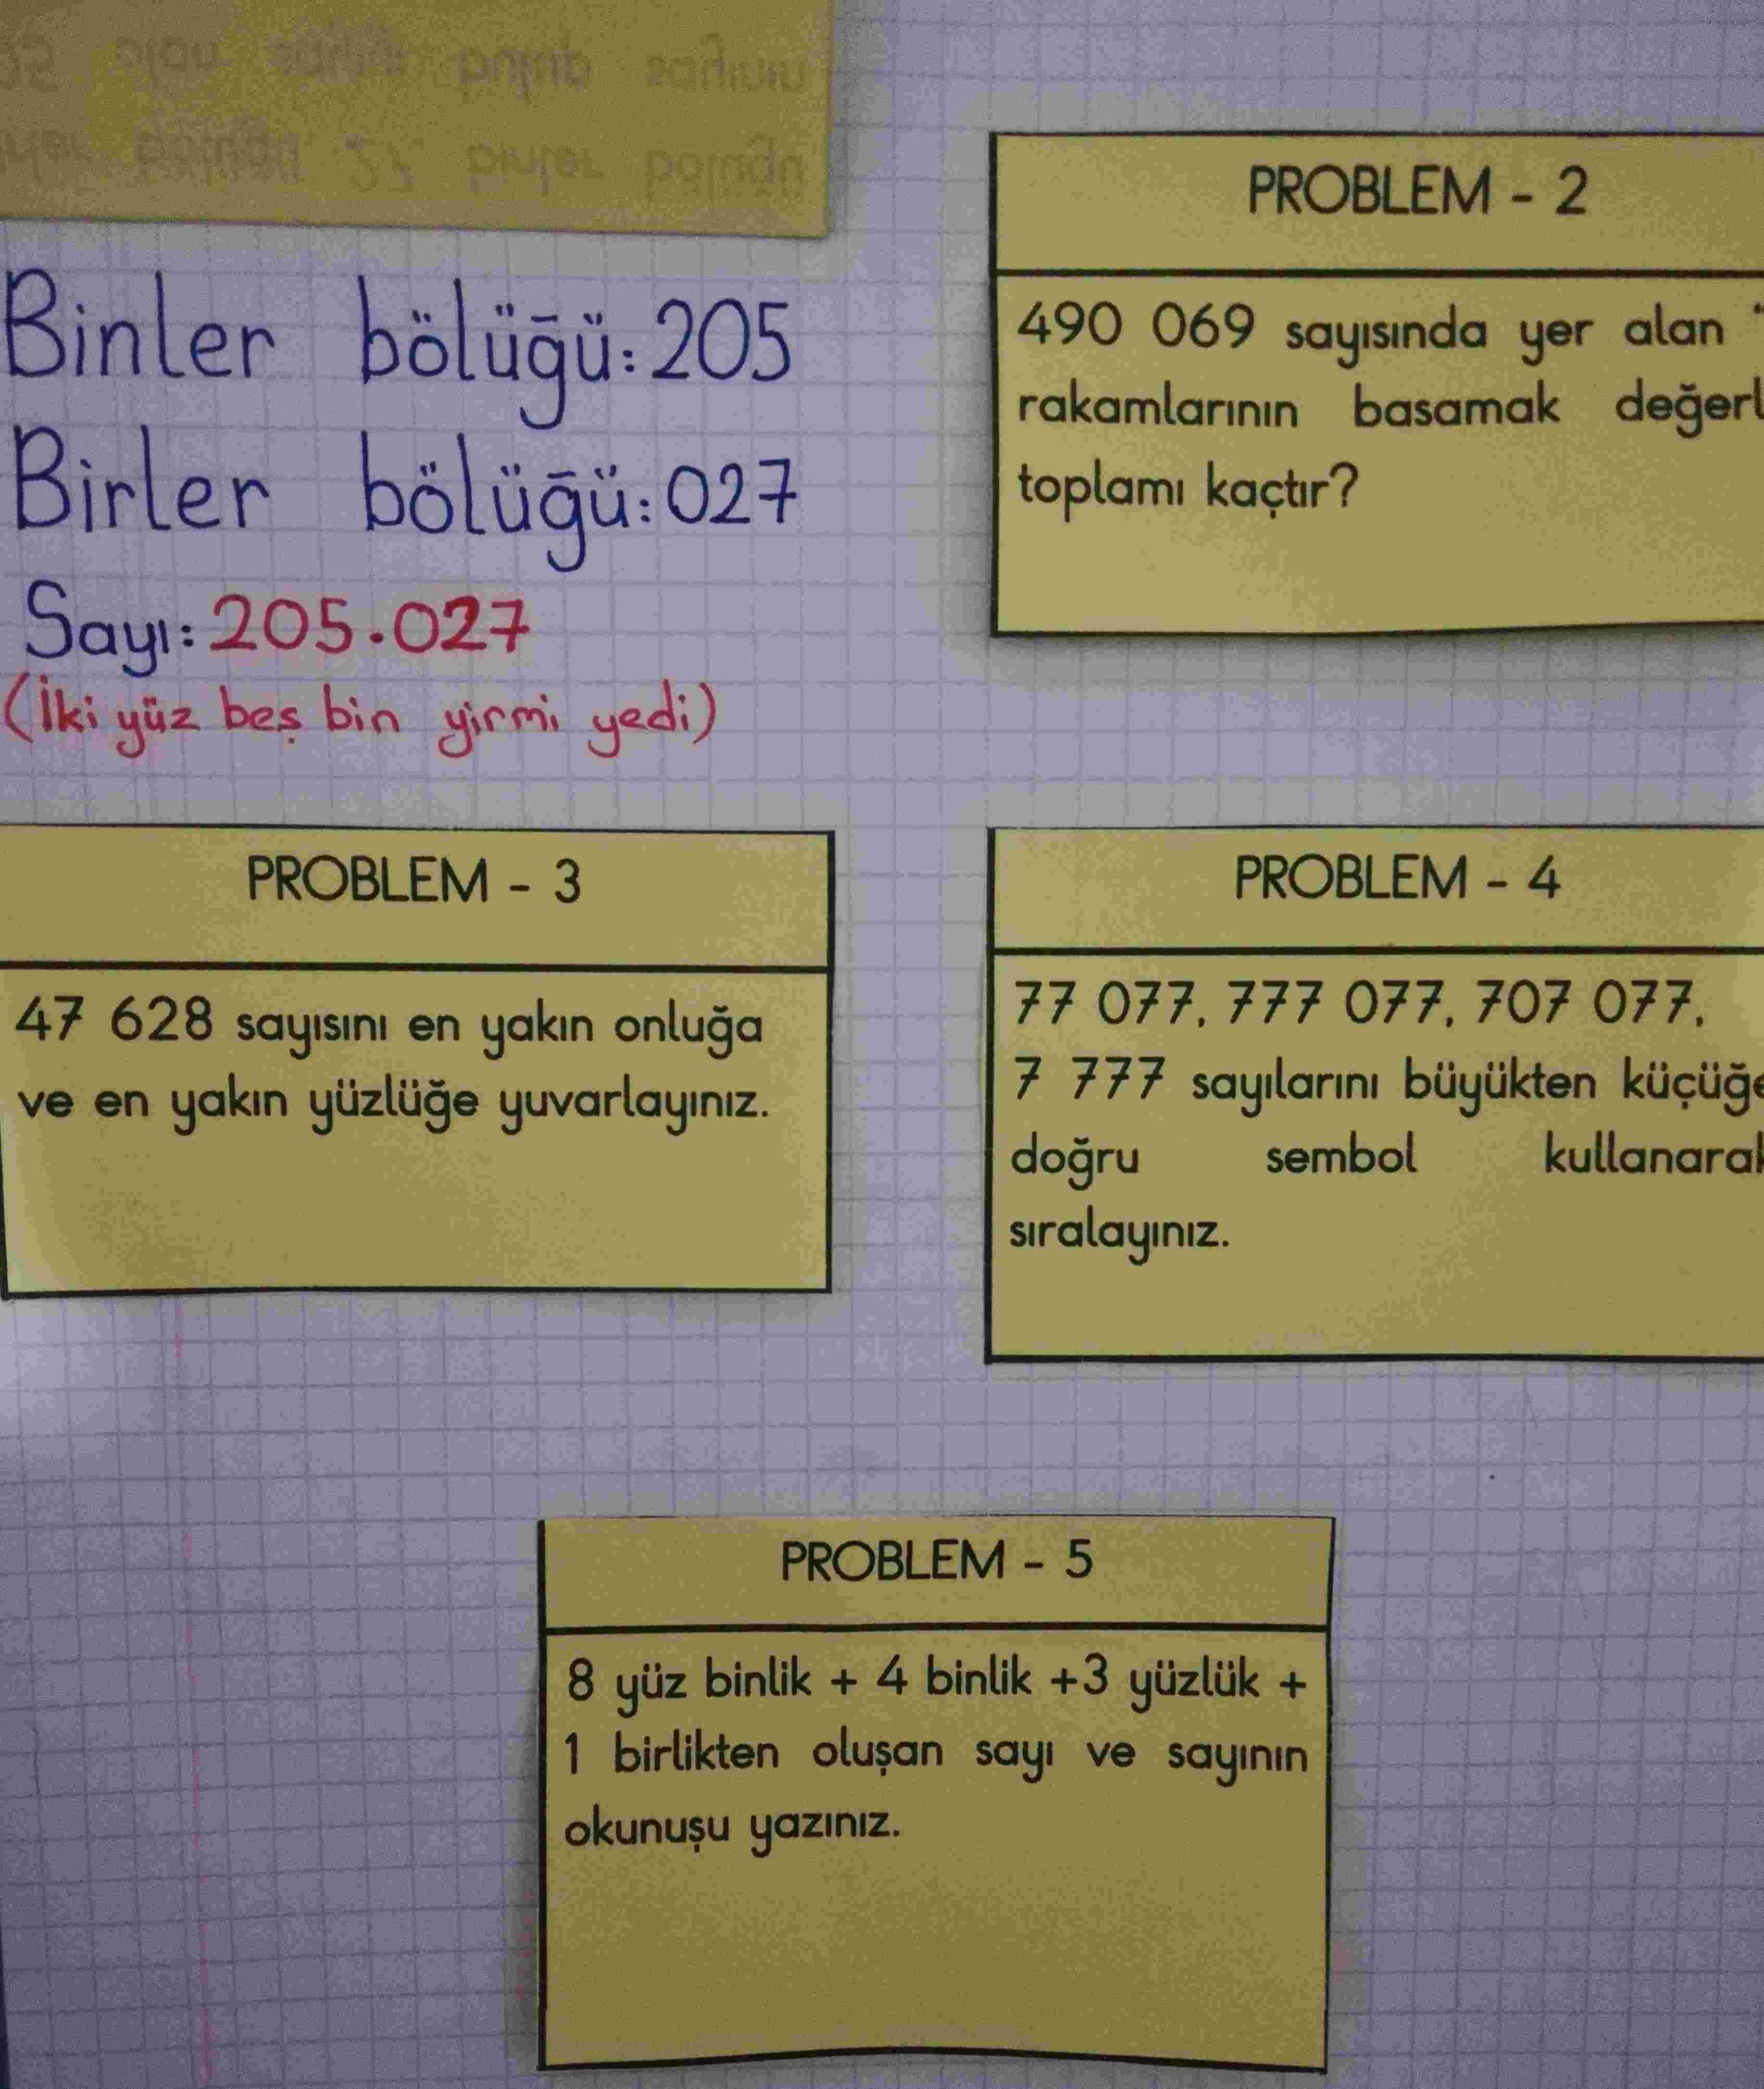 Binler bölüğü: 205
Birler bölüğü: 027
Sayı: 205.027
(İki yüz beş bin yirmi yedi)
PROBLEM - 2
490 069 sayısında yer alan
rakamlarının basamak değerl
toplamı kaçtır?
PROBLEM - 3
47 628 sayısını en yakın onluğa
ve en yakın yüzlüğe yuvarlayınız.
PROBLEM - 4
77 077, 777 077, 707 077,
7 777 sayılarını büyükten küçüğe
doğru sembol kullanarak
sıralayınız.
PROBLEM - 5
8 yüz binlik + 4 binlik +3 yüzlük +
1 birlikten oluşan sayı ve sayının
okunuşu yazınız.